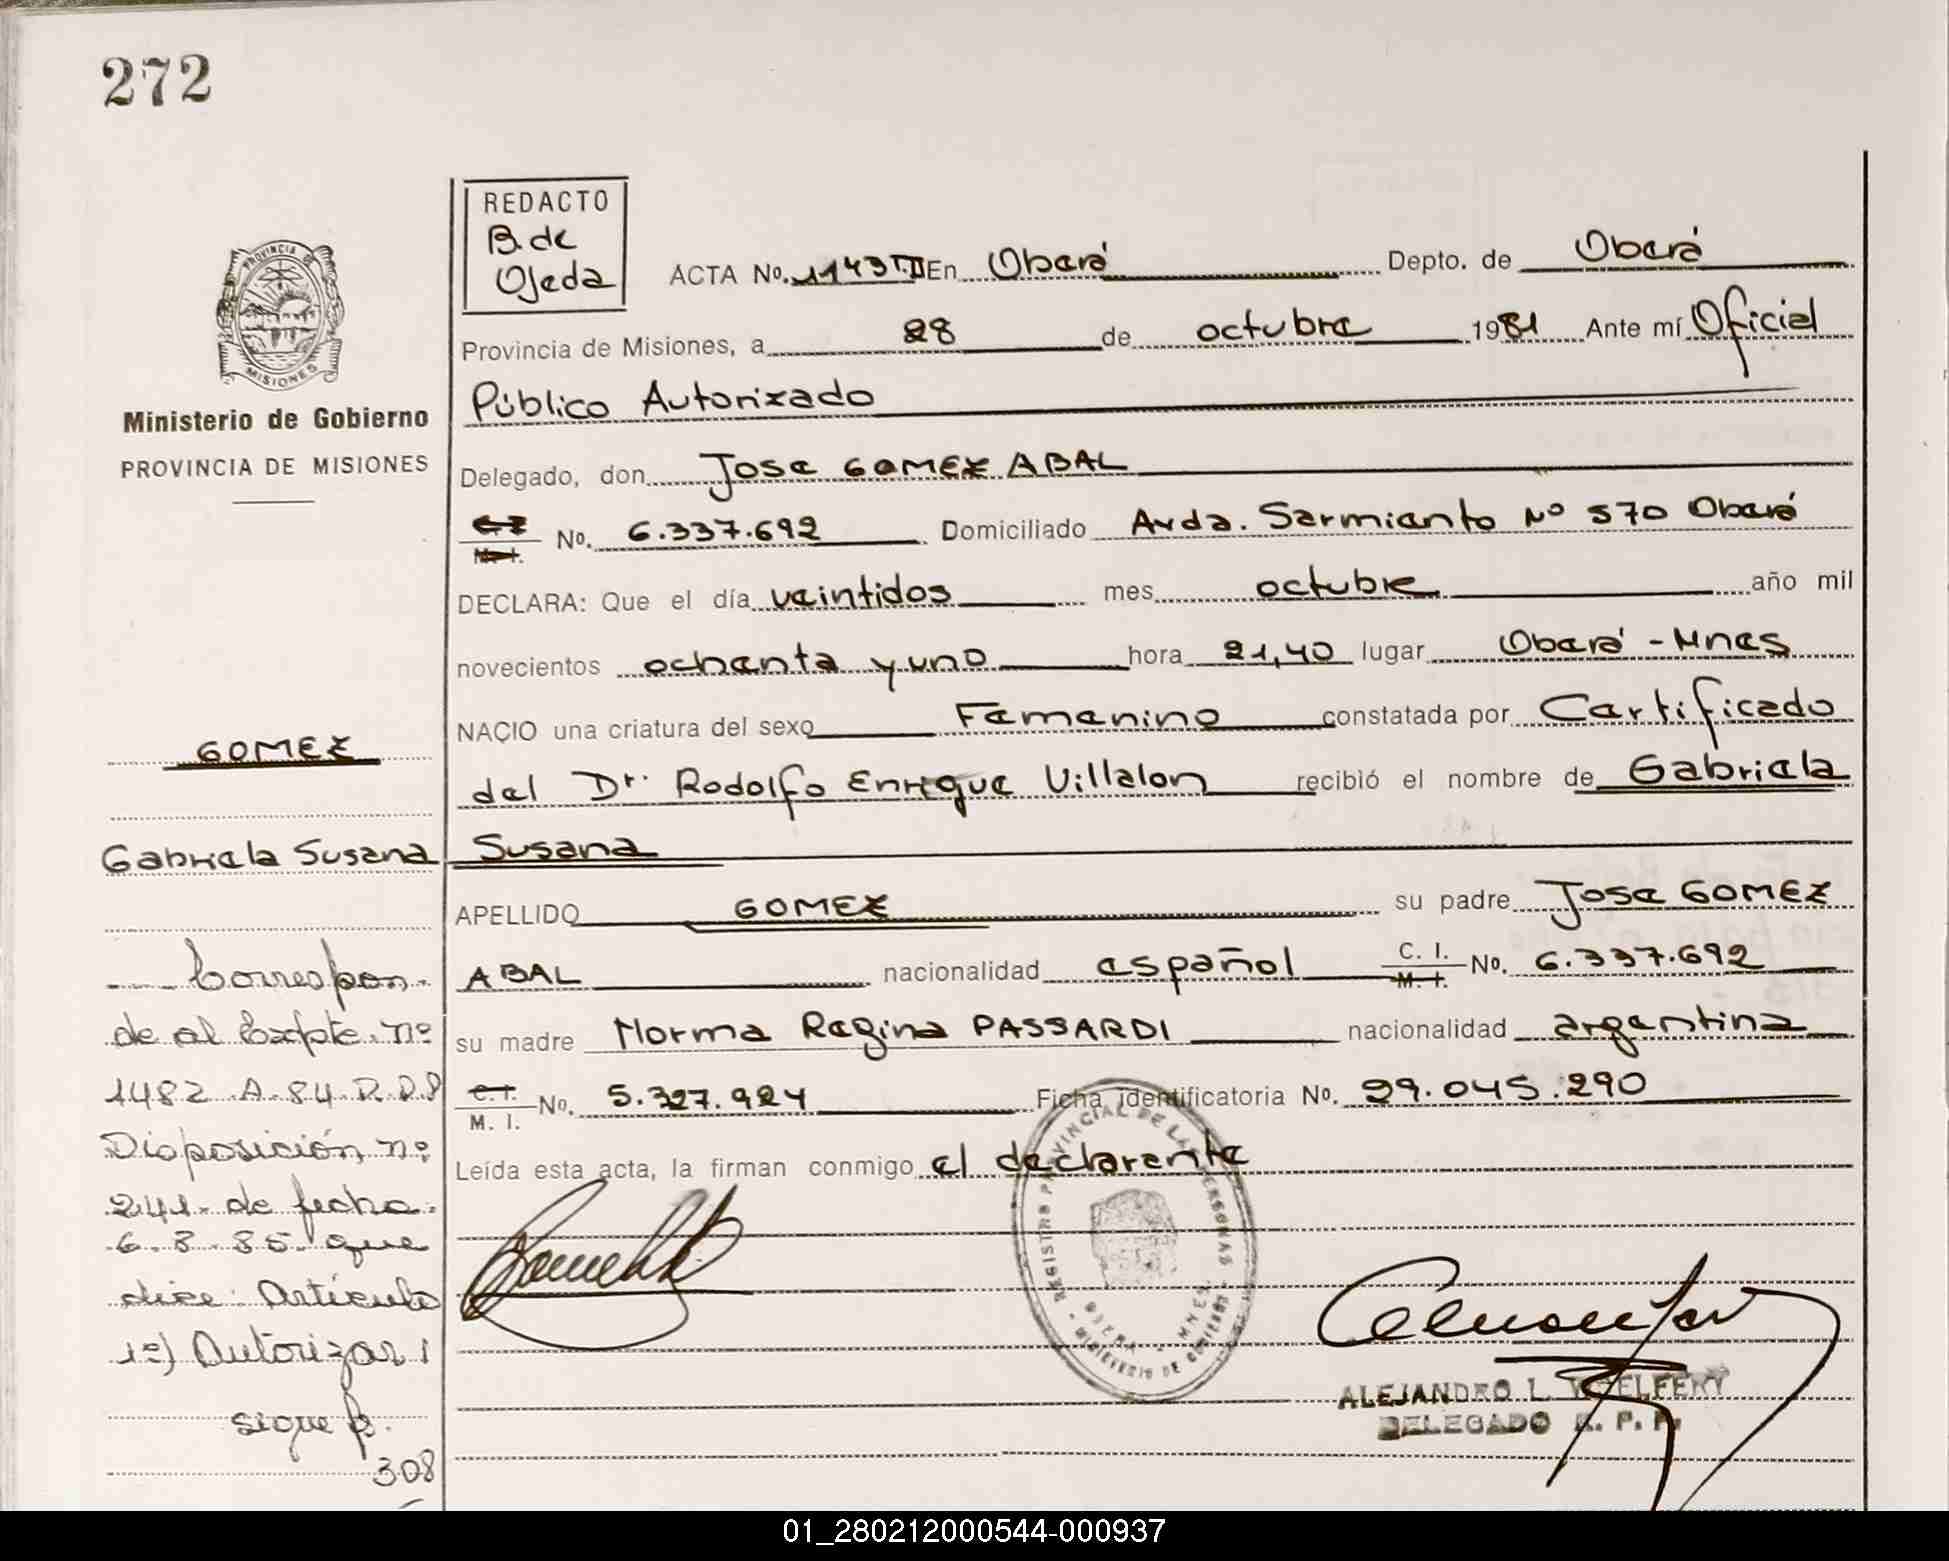 272
REDACTO
B. de
Ojeda
PROVINCIA DE
MISIONES
Ministerio de Gobierno
PROVINCIA DE MISIONES
ACTA No. 1143T.II En Oberá Depto. de Oberá
Provincia de Misiones, a 28 de octubre 1981 Ante mí Oficial
Público Autorizado
Delegado, don Jose GOMEZ ABAL
C. I. M. I. No. 6.337.692 Domiciliado Avda. Sarmiento Nº 570 Oberá
DECLARA: Que el día veintidos mes octubre año mil
novecientos ochenta y uno hora 21,40 lugar Oberá - Mnes
NACIO una criatura del sexo Femenino constatada por Certificado
del Dr. Rodolfo Enrique Villalon recibió el nombre de Gabriela
Susana
APELLIDO GOMEZ su padre Jose GOMEZ
ABAL nacionalidad español C. I. M. I. No. 6.337.692
su madre Norma Regina PASSARDI nacionalidad argentina
C. I. M. I. No. 5.327.924 Ficha identificatoria No. 29.045.290
Leída esta acta, la firman conmigo el declarante
GOMEZ
Gabriela Susana
Correspon-
de al Expte. nº
1482 A. 84. D.D.P
Disposición nº
241. de fecha
6. 8. 85. que
dice: Artículo
1º) Autorizar:
sigue fs.
308
REGISTRO PROVINCIAL DE LAS PERSONAS - MINISTERIO DE GOBIERNO
OBERA - MNES.
ALEJANDRO L.
DELEGADO R. P. P.
01_280212000544-000937